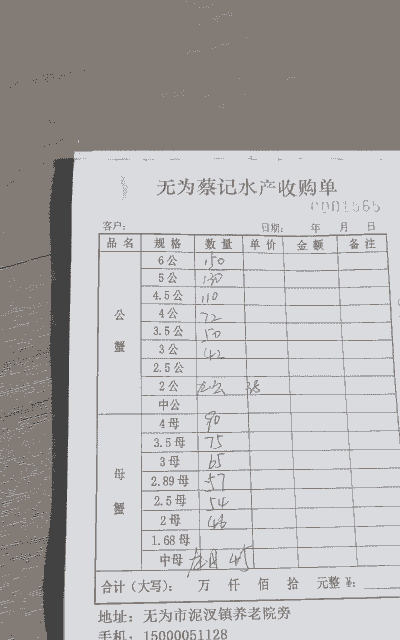 无为蔡记水产收购单
0001565
客户: 日期: 年 月 日
品名 规格 数量 单价 金额 备注
公蟹
6公 150
5公 130
4.5公 110
4公 72
3.5公 50
3公 42
2.5公
2公 38
中公
母蟹
4母 90
3.5母 75
3母 65
2.89母 57
2.5母 54
2母 46
1.68母
中母 45
合计(大写): 万 仟 佰 拾 元整 ¥:
地址: 无为市泥汊镇养老院旁
手机: 15000051128